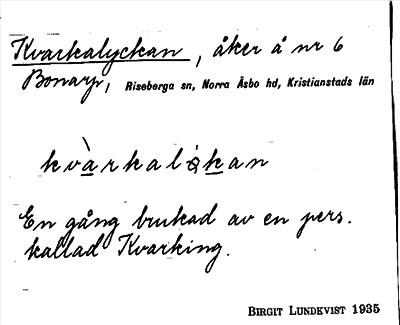 Kvarkalyckan, åker å nr 6
Bonarp, Riseberga sn, Norra Åsbo hd, Kristianstads län
kvàrkalỳkan
En gång brukad av en pers.
kallad Kvarking.
BIRGIT LUNDKVIST 1935